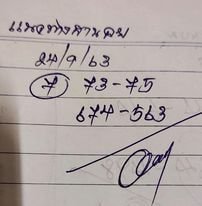 แนวทางสานฝัน
24/9/63
7 73-75
674-563